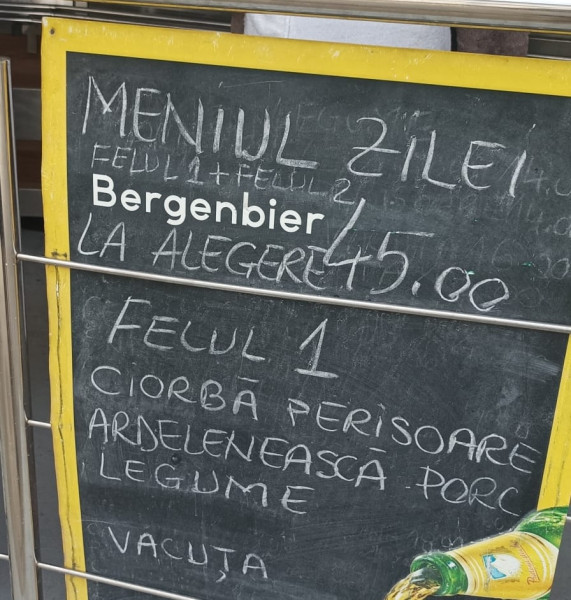 MENIUL ZILEI
FELUL 1 + FELUL 2
Bergenbier
LA ALEGERE 45.00
FELUL 1
CIORBĂ PERIȘOARE
ARDELENEASCĂ PORC
LEGUME
VACUȚA